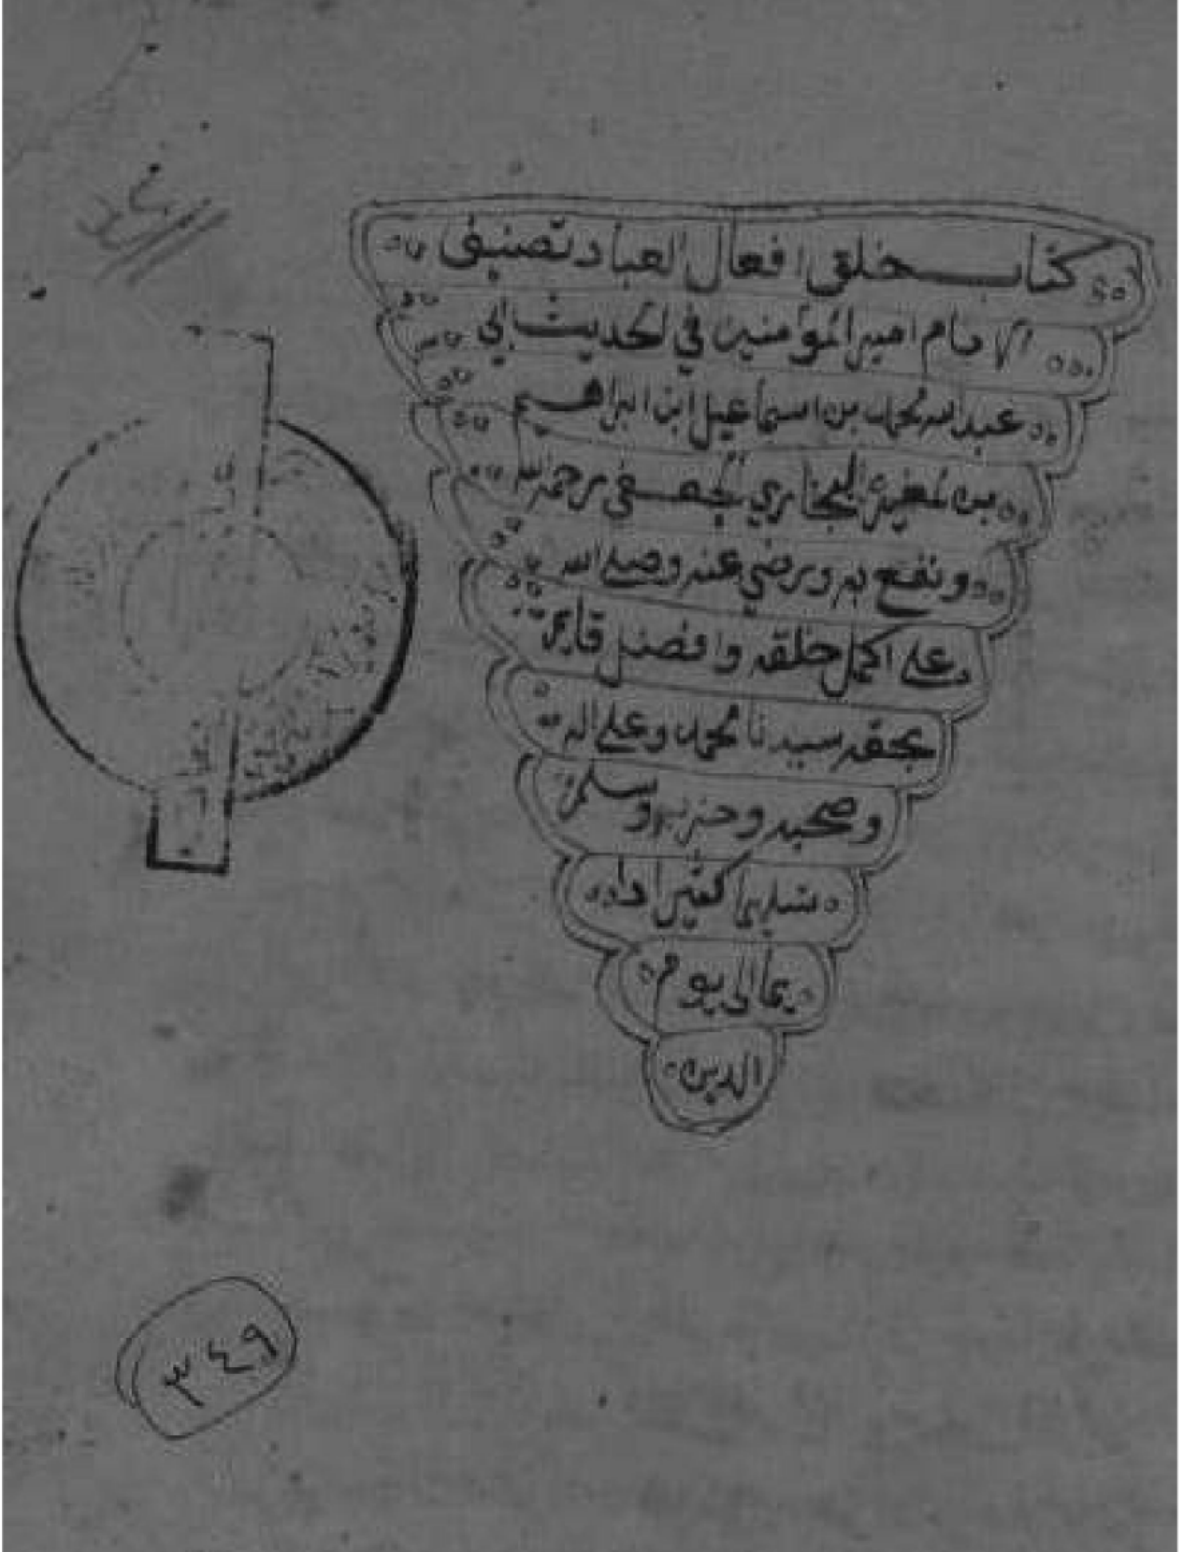 كتاب خلق افعال العباد تصنيف
الامام امير المؤمنين في الحديث ابي
عبد الله محمد بن اسماعيل ابن ابراهيم
بن المغيرة البخاري الجعفي رحمه الله
ونفع به ورضي عنه وصلى الله
على اكمل خلقه وافضل
بحقه سيدنا محمد وعلى اله
وصحبه وحزبه وسلم
تسليما كثيرا دا
يما الى يوم
الدين
٣٤٩